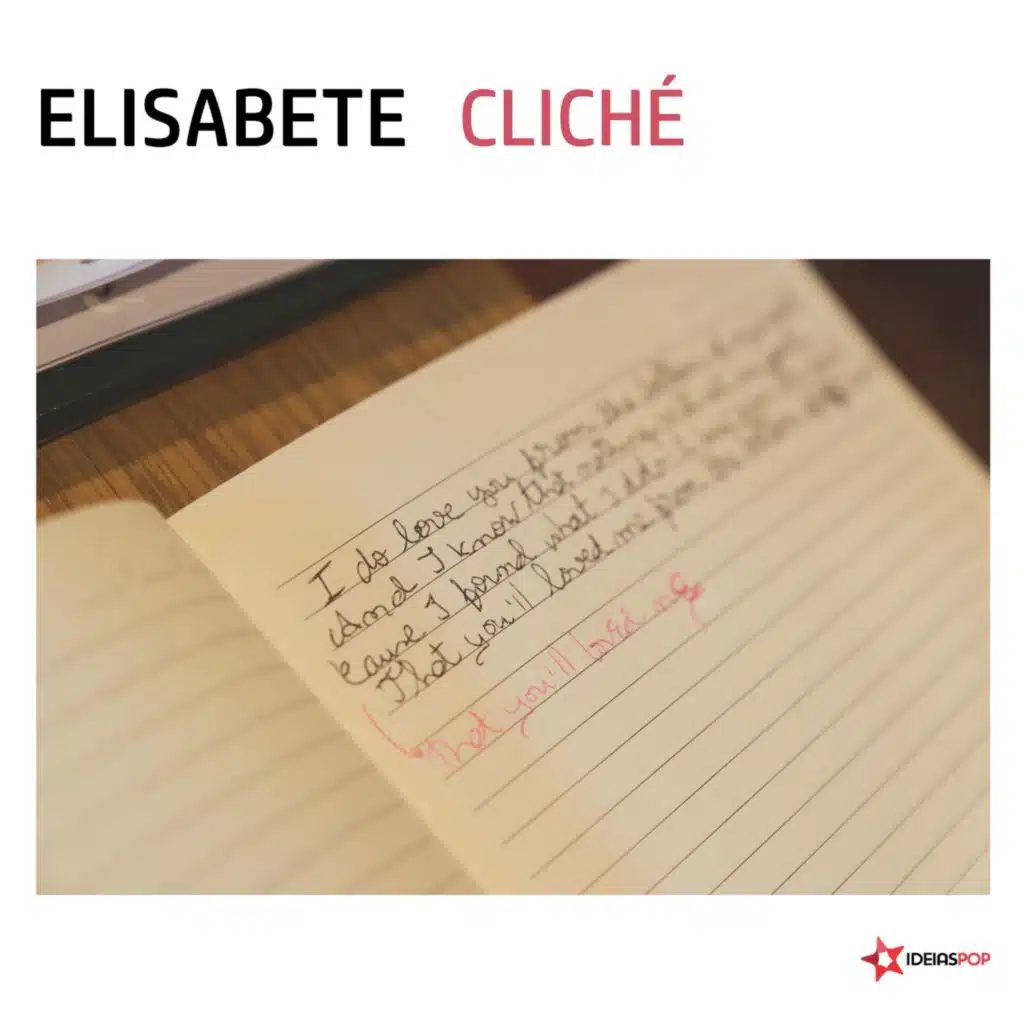 ELISABETE CLICHÉ
I do love you from the
And I know that nothing
'cause I found what I
That you'll loved me from the
That you'll loved me
IDEIASPOP